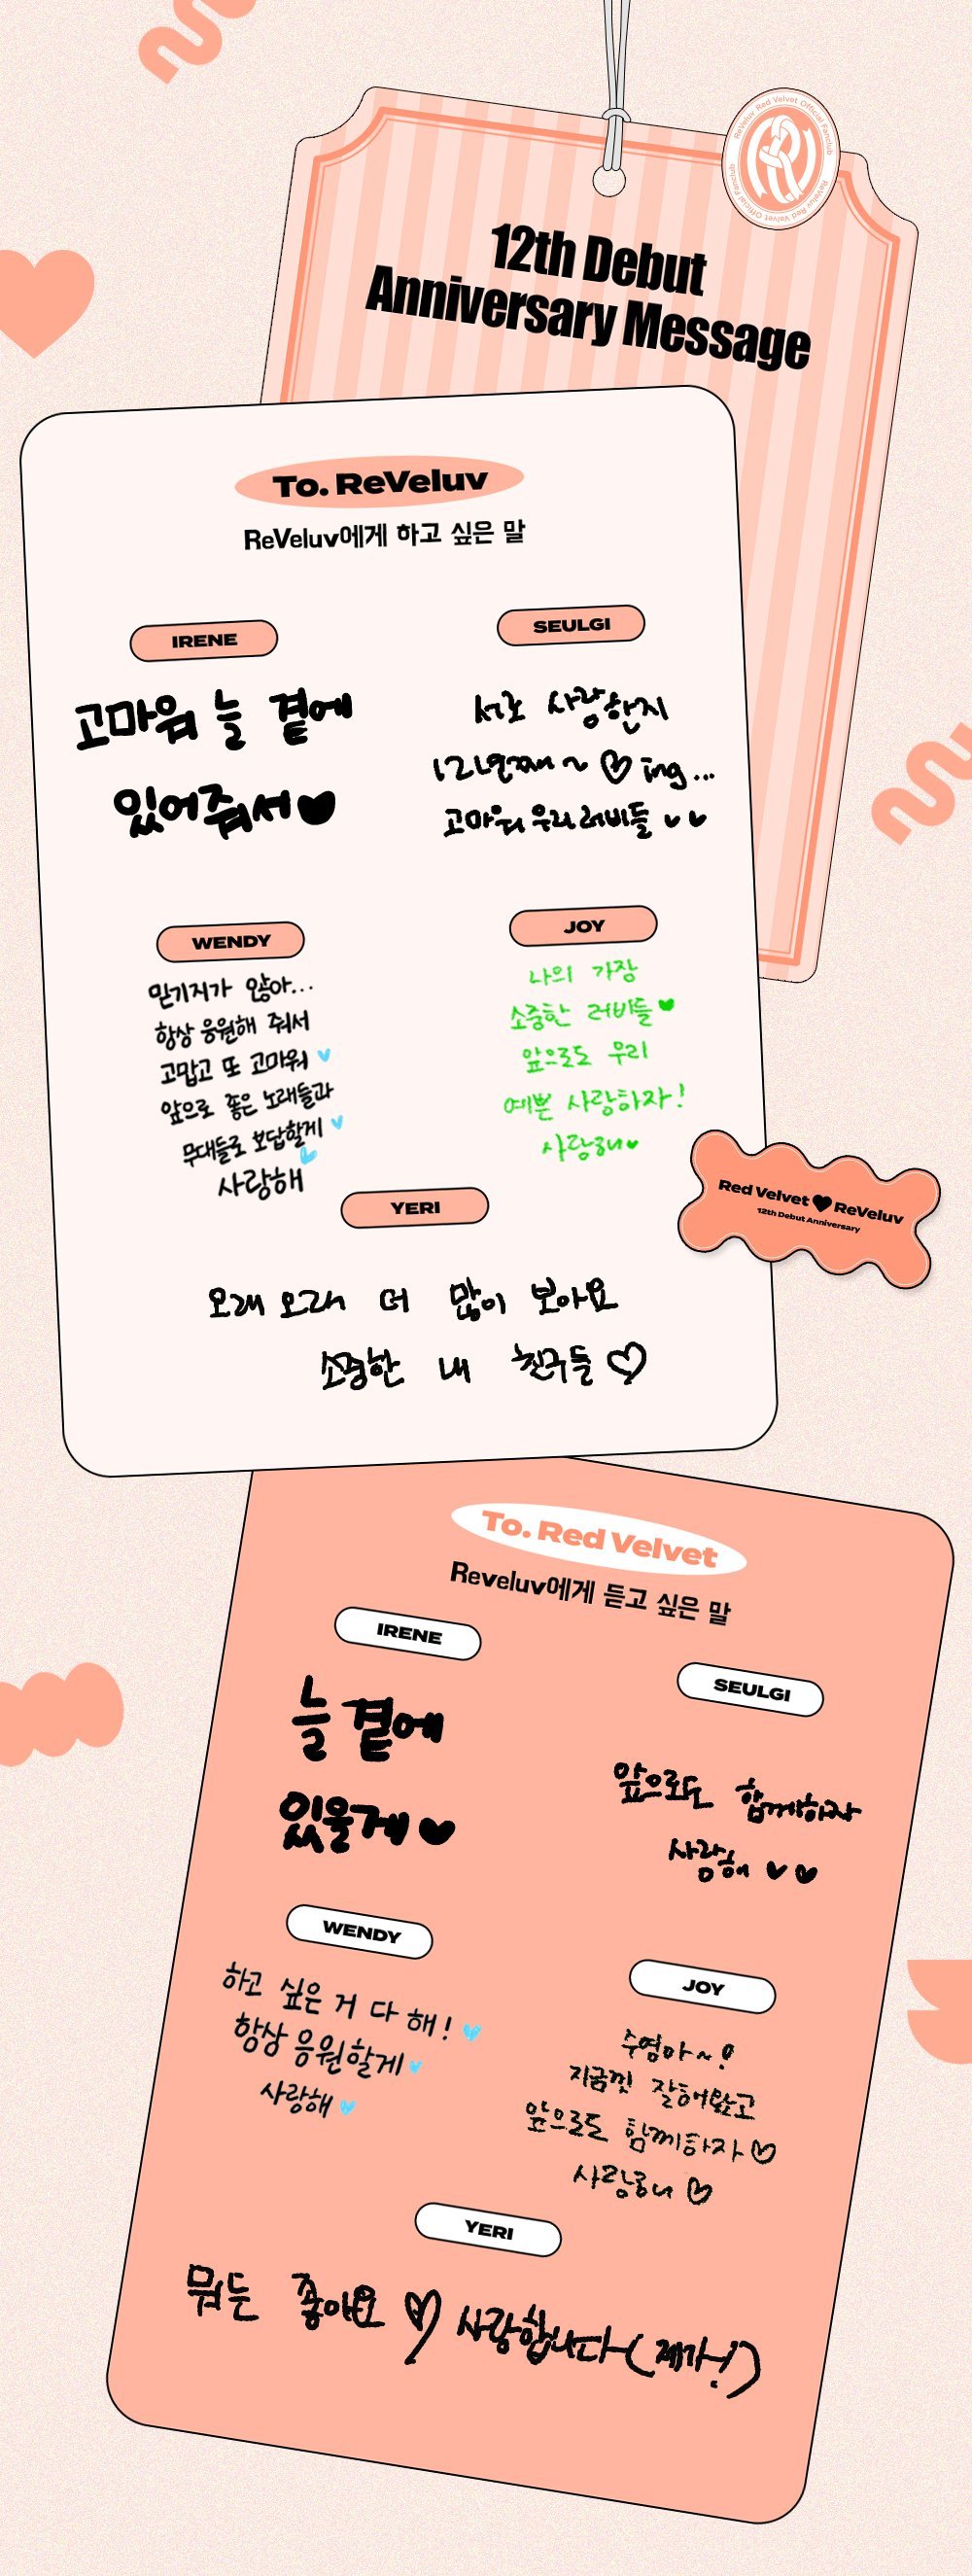 ReVeluv Red Velvet Official Fanclub
ReVeluv Red Velvet Official Fanclub
12th Debut
Anniversary Message
To. ReVeluv
ReVeluv에게 하고 싶은 말
IRENE
고마워 늘 곁에
있어줘서♥
SEULGI
서로 사랑한지
12년째 ~ ♡ ing...
고마워 우리 러비들 ♥ ♥
WENDY
믿기지가 않아...
항상 응원해 줘서
고맙고 또 고마워 ♥
앞으로 좋은 노래들과
무대들로 보답할게 ♥
사랑해 ♥
JOY
나의 가장
소중한 러비들 ♥
앞으로도 우리
예쁜 사랑하자!
사랑해 ♥
YERI
오래 오래 더 많이 보아요
소중한 내 친구들 ♡
Red Velvet ♥ ReVeluv
12th Debut Anniversary
To. Red Velvet
Reveluv에게 듣고 싶은 말
IRENE
늘 곁에
있을게 ♥
SEULGI
앞으로도 함께하자
사랑해 ♥ ♥
WENDY
하고 싶은 거 다 해! ♥
항상 응원할게 ♥
사랑해 ♥
JOY
수영아~!
지금껏 잘해왔고
앞으로도 함께하자 ♡
사랑해 ♡
YERI
뭐든 좋아요 ♡ 사랑합니다 (제가!)